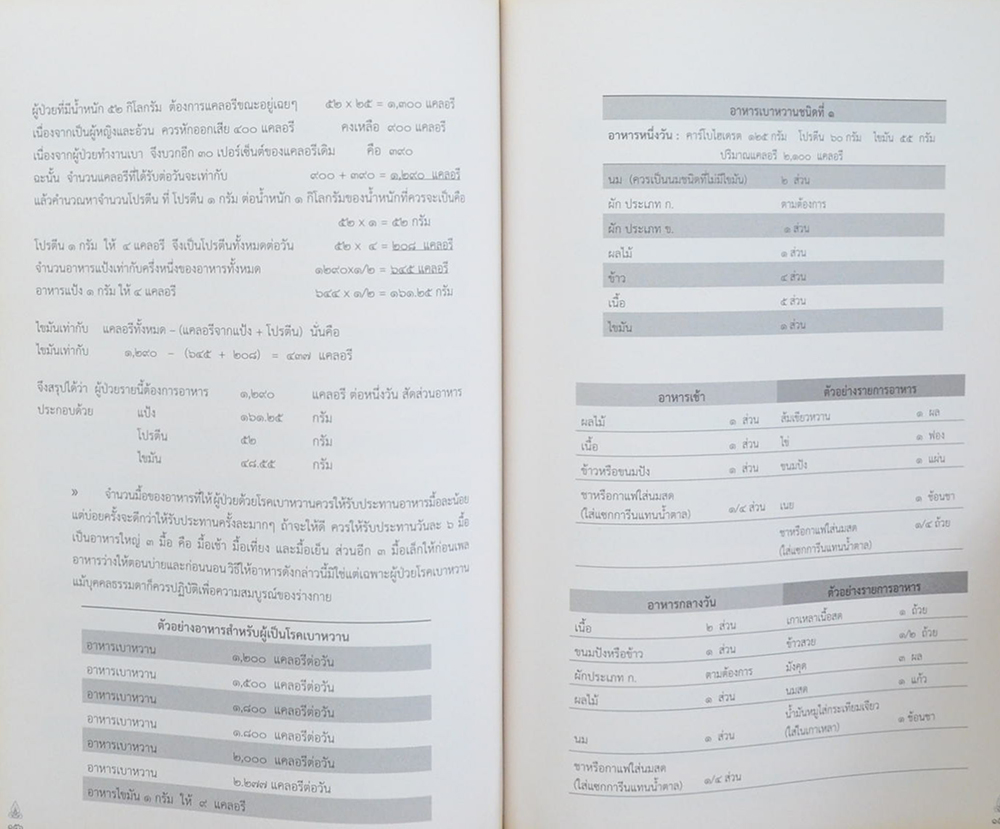 ผู้ป่วยที่มีน้ำหนัก ๕๒ กิโลกรัม ต้องการแคลอรีขณะอยู่เฉยๆ ๕๒ x ๒๕ = ๑,๓๐๐ แคลอรี
เนื่องจากเป็นผู้หญิงและอ้วน ควรหักออกเสีย ๔๐๐ แคลอรี คงเหลือ ๙๐๐ แคลอรี
เนื่องจากผู้ป่วยทำงานเบา จึงบวกอีก ๓๐ เปอร์เซ็นต์ของแคลอรีเดิม คือ ๓๙๐
ฉะนั้น จำนวนแคลอรีที่ได้รับต่อวันจะเท่ากับ ๙๐๐ + ๓๙๐ = ๑,๒๙๐ แคลอรี
แล้วคำนวณหาจำนวนโปรตีน ที่ โปรตีน ๑ กรัม ต่อน้ำหนัก ๑ กิโลกรัมของน้ำหนักที่ควรจะเป็นคือ
๕๒ x ๑ = ๕๒ กรัม
โปรตีน ๑ กรัม ให้ ๔ แคลอรี จึงเป็นโปรตีนทั้งหมดต่อวัน ๕๒ x ๔ = ๒๐๘ แคลอรี
จำนวนอาหารแป้งเท่ากับครึ่งหนึ่งของอาหารทั้งหมด ๑๒๙๐x๑/๒ = ๖๔๕ แคลอรี
อาหารแป้ง ๑ กรัม ให้ ๔ แคลอรี ๖๔๔ x ๑/๒ = ๑๖๑.๒๕ กรัม
ไขมันเท่ากับ แคลอรีทั้งหมด – (แคลอรีจากแป้ง + โปรตีน) นั่นคือ
ไขมันเท่ากับ ๑,๒๙๐ – (๖๔๕ + ๒๐๘) = ๔๓๗ แคลอรี
จึงสรุปได้ว่า ผู้ป่วยรายนี้ต้องการอาหาร ๑,๒๙๐ แคลอรี ต่อหนึ่งวัน สัดส่วนอาหาร
ประกอบด้วย แป้ง ๑๖๑.๒๕ กรัม
โปรตีน ๕๒ กรัม
ไขมัน ๔๘.๕๕ กรัม
» จำนวนมื้อของอาหารที่ให้ผู้ป่วยด้วยโรคเบาหวานควรให้รับประทานอาหารมื้อละน้อย
แต่บ่อยครั้งจะดีกว่าให้รับประทานครั้งละมากๆ ถ้าจะให้ดี ควรให้รับประทานวันละ ๖ มื้อ
เป็นอาหารใหญ่ ๓ มื้อ คือ มื้อเช้า มื้อเที่ยง และมื้อเย็น ส่วนอีก ๓ มื้อเล็กให้ก่อนเพล
อาหารว่างให้ตอนบ่ายและก่อนนอน วิธีให้อาหารดังกล่าวนี้มิใช่แต่เฉพาะผู้ป่วยโรคเบาหวาน
แม้บุคคลธรรมดาก็ควรปฏิบัติเพื่อความสมบูรณ์ของร่างกาย
ตัวอย่างอาหารสำหรับผู้เป็นโรคเบาหวาน
อาหารเบาหวาน ๑,๒๐๐ แคลอรีต่อวัน
อาหารเบาหวาน ๑,๕๐๐ แคลอรีต่อวัน
อาหารเบาหวาน ๑,๘๐๐ แคลอรีต่อวัน
อาหารเบาหวาน ๑.๘๐๐ แคลอรีต่อวัน
อาหารเบาหวาน ๒,๐๐๐ แคลอรีต่อวัน
อาหารเบาหวาน ๒.๒๗๗ แคลอรีต่อวัน
อาหารไขมัน ๑ กรัม ให้ ๙ แคลอรี
อาหารเบาหวานชนิดที่ ๑
อาหารหนึ่งวัน : คาร์โบไฮเดรต ๑๒๕ กรัม โปรตีน ๖๐ กรัม ไขมัน ๕๕ กรัม
ปริมาณแคลอรี ๒,๑๐๐ แคลอรี
นม (ควรเป็นนมชนิดที่ไม่มีไขมัน) ๒ ส่วน
ผัก ประเภท ก. ตามต้องการ
ผัก ประเภท ข. ๑ ส่วน
ผลไม้ ๑ ส่วน
ข้าว ๔ ส่วน
เนื้อ ๕ ส่วน
ไขมัน ๑ ส่วน
อาหารเช้า ตัวอย่างรายการอาหาร
ผลไม้ ๑ ส่วน ส้มเขียวหวาน ๑ ผล
เนื้อ ๑ ส่วน ไข่ ๑ ฟอง
ข้าวหรือขนมปัง ๑ ส่วน ขนมปัง ๑ แผ่น
ชาหรือกาแฟใส่นมสด
(ใส่แซกการีนแทนน้ำตาล) ๑/๔ ส่วน เนย ๑ ช้อนชา
ชาหรือกาแฟใส่นมสด ๑/๔ ถ้วย
(ใส่แซกการีนแทนน้ำตาล)
อาหารกลางวัน ตัวอย่างรายการอาหาร
เนื้อ ๒ ส่วน เกาเหลาเนื้อสด ๑ ถ้วย
ขนมปังหรือข้าว ๑ ส่วน ข้าวสวย ๑/๒ ถ้วย
ผักประเภท ก. ตามต้องการ มังคุด ๓ ผล
ผลไม้ ๑ ส่วน นมสด ๑ แก้ว
นม ๑ ส่วน น้ำมันหมูใส่กระเทียมเจียว ๑ ช้อนชา
(ใส่ในเกาเหลา)
ชาหรือกาแฟใส่นมสด
(ใส่แซกการีนแทนน้ำตาล) ๑/๔ ส่วน